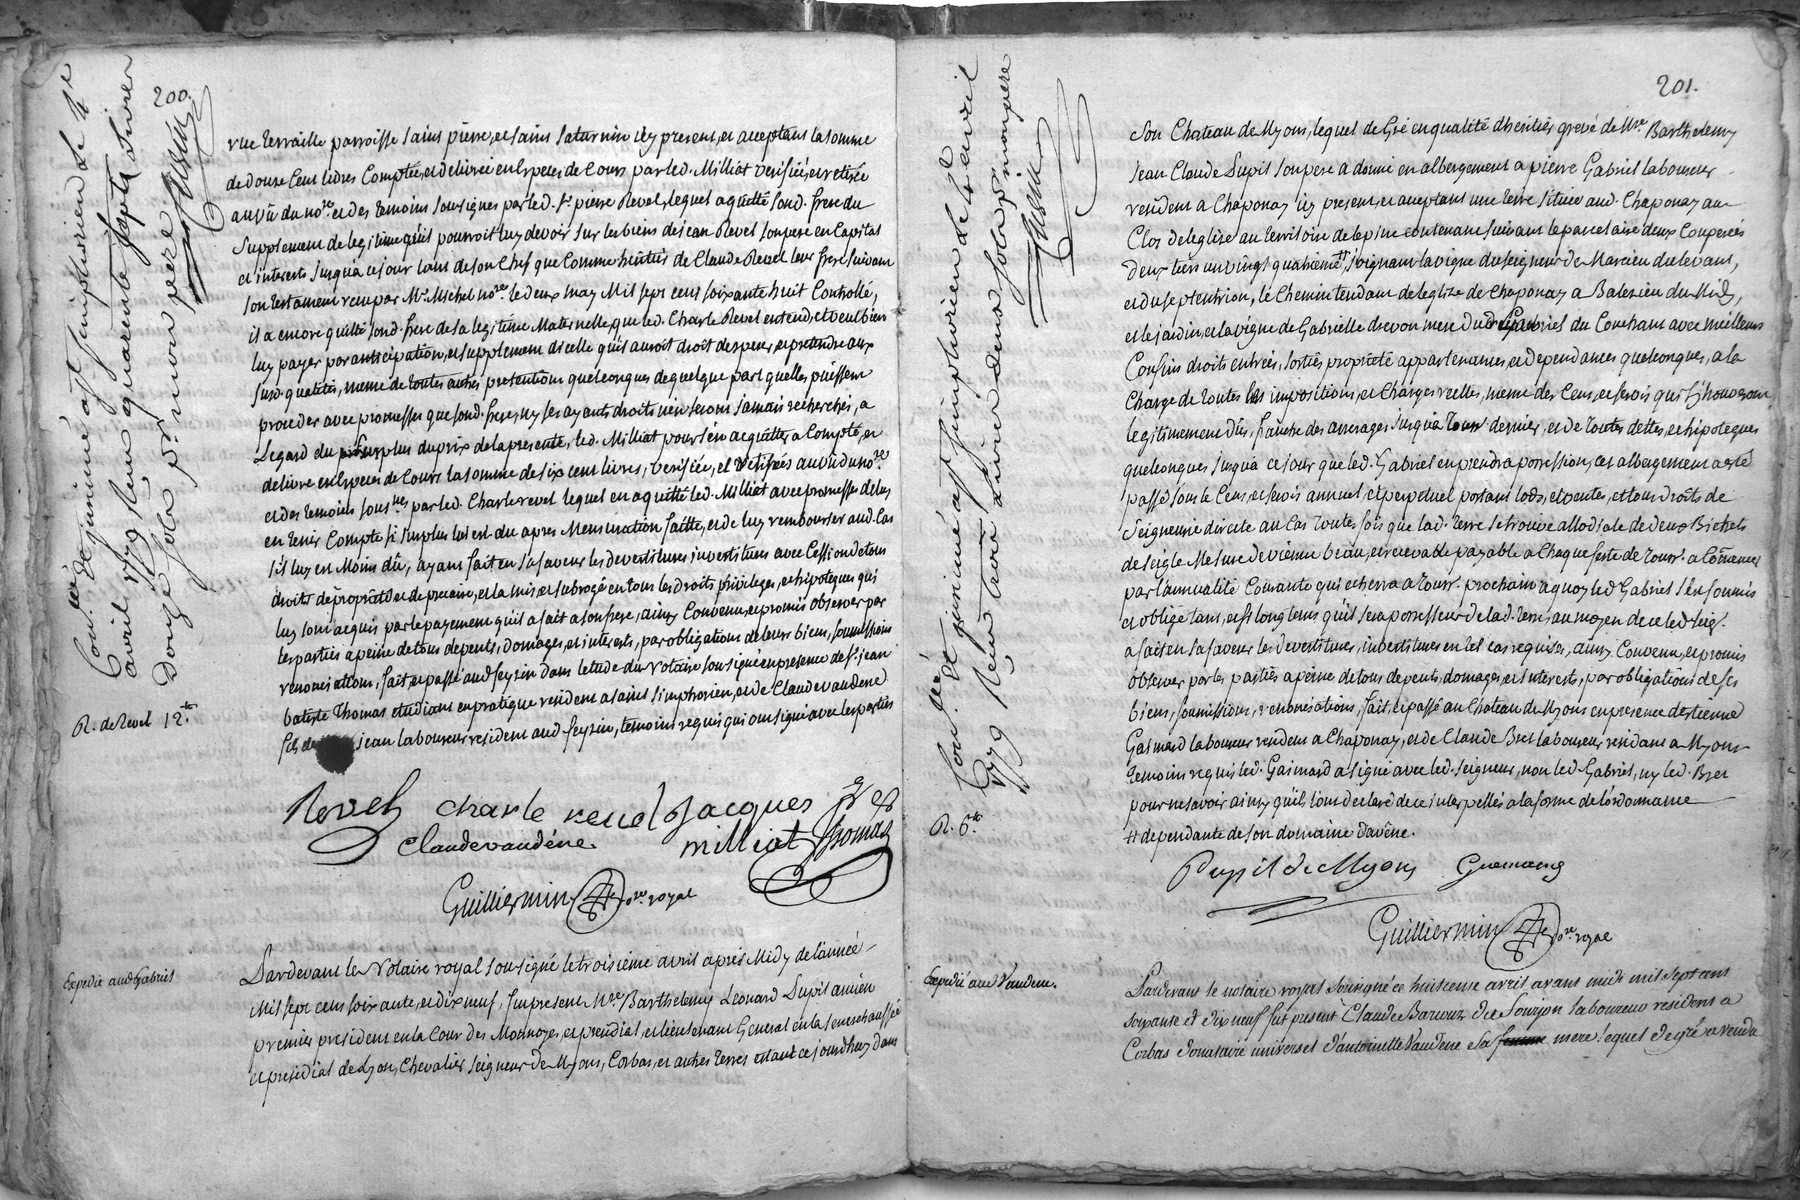 200.
rue terraille parroisse saint pierre, et saint saturnin icy present, et acceptant la somme
de douze Cent livres Comptée, et delivrée en Especes de Cours par led. Milliat verifiée, et retirée
au vû du nore. et des temoins soussignes par led. Sr. pierre Revel, lequel a quitté sond. frere du
supplement de legitime qu'il pourroit luy devoir sur les biens de jean Revel son pere en Capital
et interests jusqu'a ce jour tant de son Chef que Comme heritier de Claude Revel leur frere suivant
son testament reçu par Me. Michel nore. le deux may Mil sept cent soixante huit Controllé,
il a encore quitté sond. frere de sa legitime Maternelle que led. Charle Revel entend, et veut bien
luy payer par anticipation, et supplement d'icelle qu'il auroit droit desperer, et pretendre aux
susd. qualités, meme de toutes autres pretentions quelconques de quelque part quelles puissent
proceder avec promesses que sond. frere, ny les ayants droits n'en seront jamais recherchés, a
Legard du surplus du prix de la presente, led. Milliat pour s'en acquitter a Compté, et
delivré en Especes de Cours la somme de six cent livres, verifiée, et retirées au vû du nore.
et des temoins soussnes. par led. Charle revel lequel en a quitté led. Milliat avec promesse de luy
en tenir Compte si surplus lui est du apres Mensuration faitte, et de luy rembourser aud. Cas
s'il luy est Moins dû, ayant fait en sa faveur les devestitures investitures avec Cession de tous
droits de propriété et de precaire, et la mis, et subrogé en tous les droits privileges, et hipoteques qui
luy sont acquis par le payement qu'il a fait a son frere, ainsy Convenu, et promis observer par
les parties a peine de tous depents, domages, et interests, par obligations de leurs biens, soumissions
renonciations, fait, et passé aud feyzin dans letude du Notaire soussigné en presence de Sr. jean
batiste Thomas etudiant en pratique resident a saint simphorien, et de Claude vaudene
fils de jean laboureur resident aud feyzin, temoins requis qui ont signé avec les parties
Revel charle revel Jacques
Claude vaudéne. milliat Thomas
Guilliermin nore royal
R. de Revel 12.tt
Expedié aud Gabriel
Pardevant le Notaire royal soussigné le troisieme avril apres Midy de l'année
Mil sept cent soixante, et dix neuf, fut present Mre Barthelemy Leonard Pupil ancien
premier president en la Cour des Monnoyes, et presidial, et lieutenant General en la senechaussée
et presidial de Lyon, Chevalier seigneur de Myons, Corbas, et autres terres etant ce jourdhuy dans
201.
son Chateau de Myons, lequel de Gré en qualité d'heritier grevé de Mre Barthelemy
Jean Claude Pupil son pere a donné en albergement a pierre Gabriel laboureur
resident a Chaponay icy present, et acceptant une terre située aud. Chaponay au
Clos de leglise au territoire de lepine contenant suivant le parcelaire deux Couperées
deux tiers un vingt quatrieme #, joignant la vigne du seigneur de Marcieu du levant,
et du septentrion, le Chemin tendant de leglize de Chaponay a Balezieu du Midy,
et le jardin, et la vigne de Gabrielle drevon mere dud Gabriel du Couchant avec meilleurs
Confins droits entrées, sorties proprieté appartenances, et dependances quelconques, a la
Charge de toutes les impositions, et Charges reelles, meme des Cens, et servis qui s'y trouveront
legitimement dûs, franche des arrerages jusqu'a toussts dernier, et de toutes dettes, et hipoteques
quelconques jusqu'a ce jour que led. Gabriel en prendra possession, cet albergement a eté
passé sous le Cens, et servis annuel, et perpetuel portant lods, et ventes, et tous droits de
seigneurie directe au Cas toutes fois que lad. terre se trouve allodiale de deux Bichets
de seigle Mesure de vienne beau, et recevable payable a Chaque feste de touss. a Comencer
par l'annualité Courante qui echerra a touss. prochain a quoy led Gabriel s'est soumis
et obligé tant, et si long tems qu'il sera possesseur de lad. terre, au moyen de ce led seigr.
a fait en sa faveur les devestitures, investitures en tel cas requises, ainsy Convenu, et promis
observer par les parties a peine de tous depents, domages, et interests, par obligations de ses
biens, soumissions, renonciations, fait, et passé au Chateau de Myons en presence destienne
Gaimard laboureur resident a Chaponay, et de Claude Bret laboureur residant a Myons
temoins requis led. Gaimard a signé avec led. seigneur, non led Gabriel, ny led. Bret
pour ne savoir ainsy qu'ils l'ont declaré de ce interpellés a la forme de l'ordonnance
# dependante de son domaine d'avêne.
Pupil de Myons Guemard
Guilliermin nore. royal
R. 6.tt
Expedié aud Vaudene.
Pardevant le notaire royal soussigné ce huitieme avril avant midi mil sept cent
soixante et dix neuf fut present Claude Barioz dit Sourzon laboureur resident a
Corbas donataire universel d'antoinette Vaudene sa femme mere lequel de gré a vendu